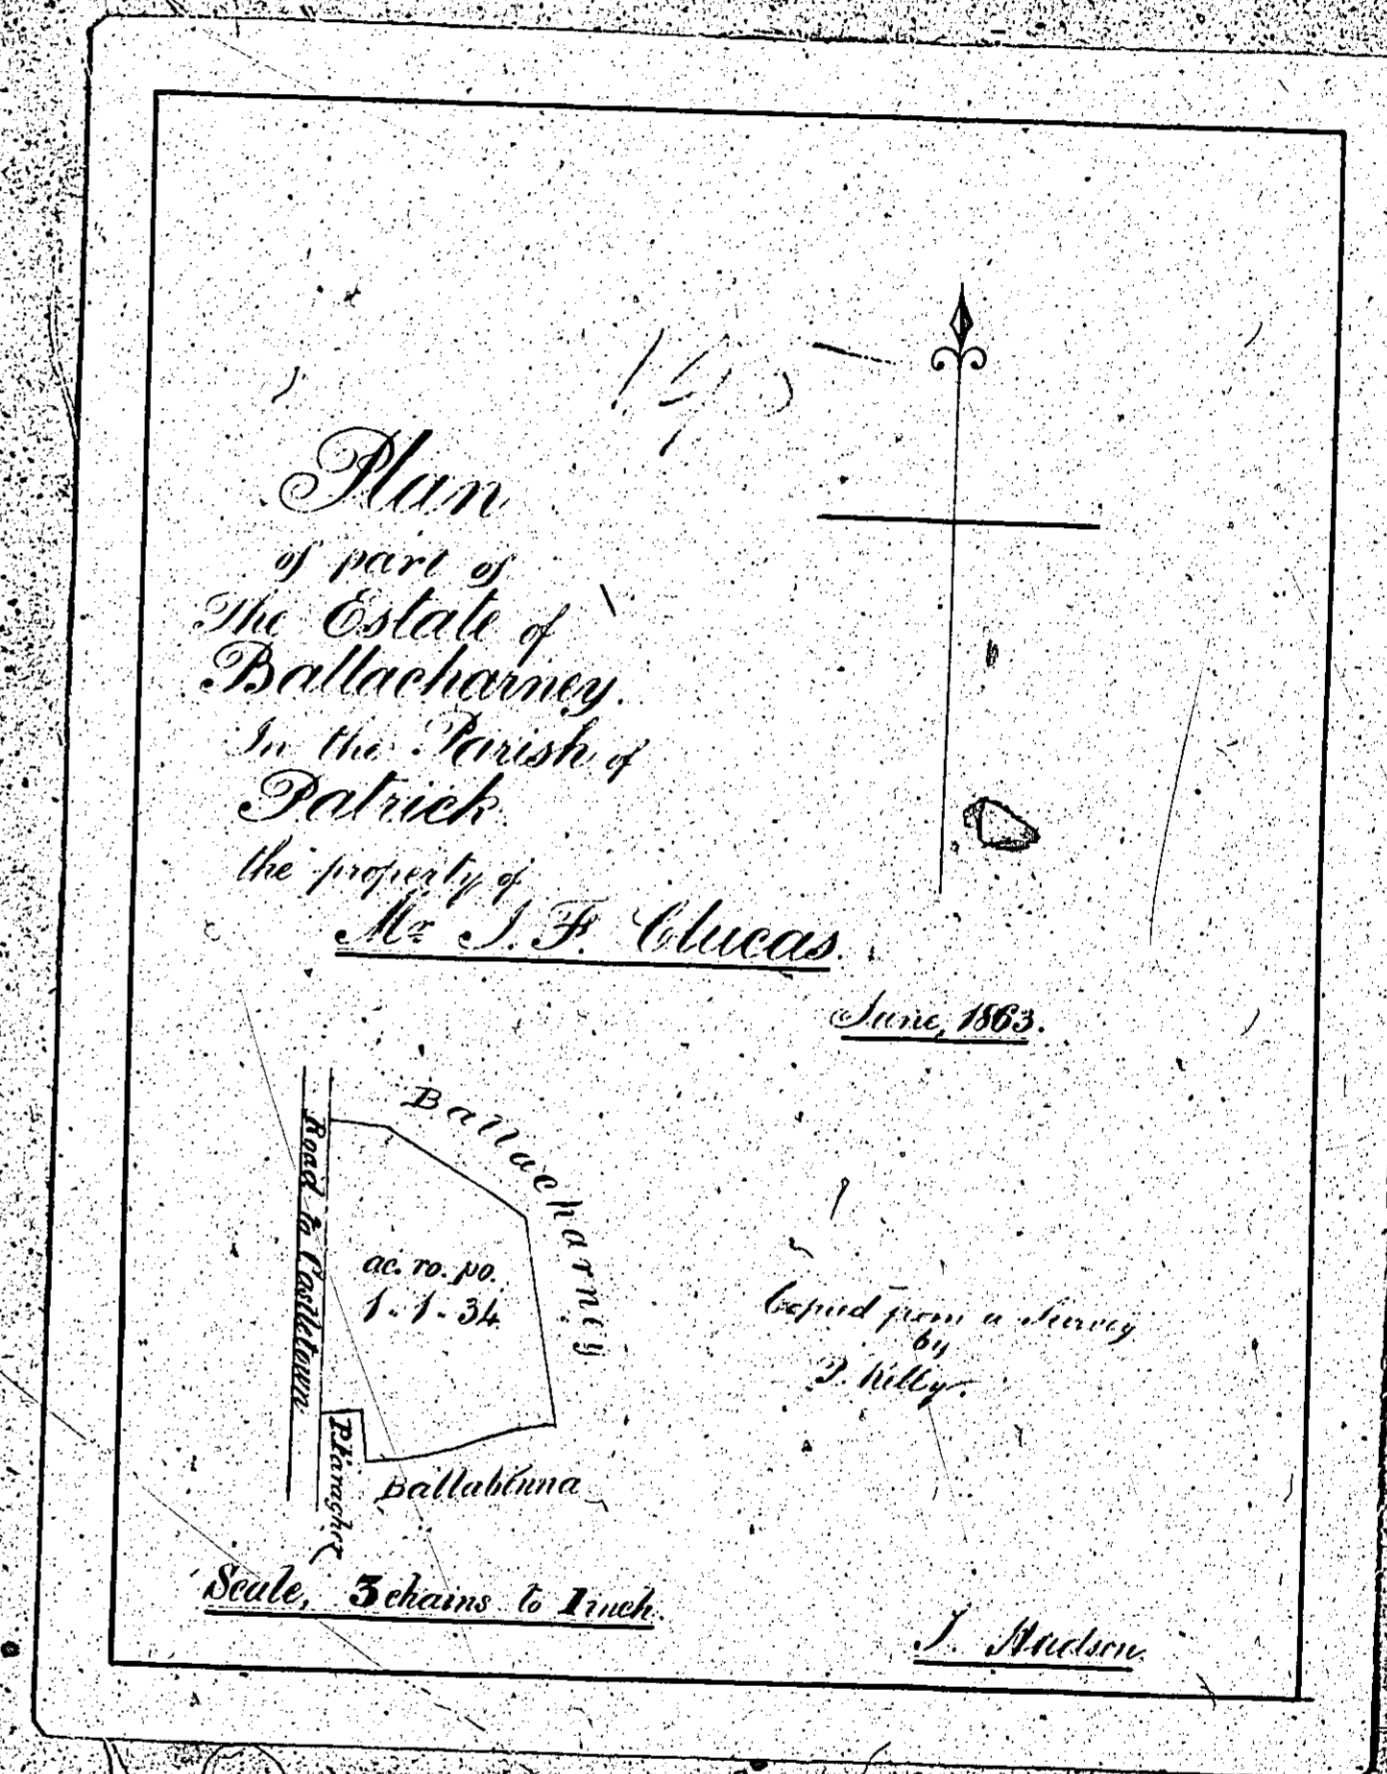 Plan
of part of
The Estate of
Ballacharney.
In the Parish of
Patrick
the property of
Mr J. F. Clucas.
June, 1863.
Ballacharney
Road to Castletown
ac. ro. po.
1 - 1 - 34
Copied from a Survey
by
P. Killey.
Ballabenna
Scale, 3 chains to 1 inch.
J. Hudson